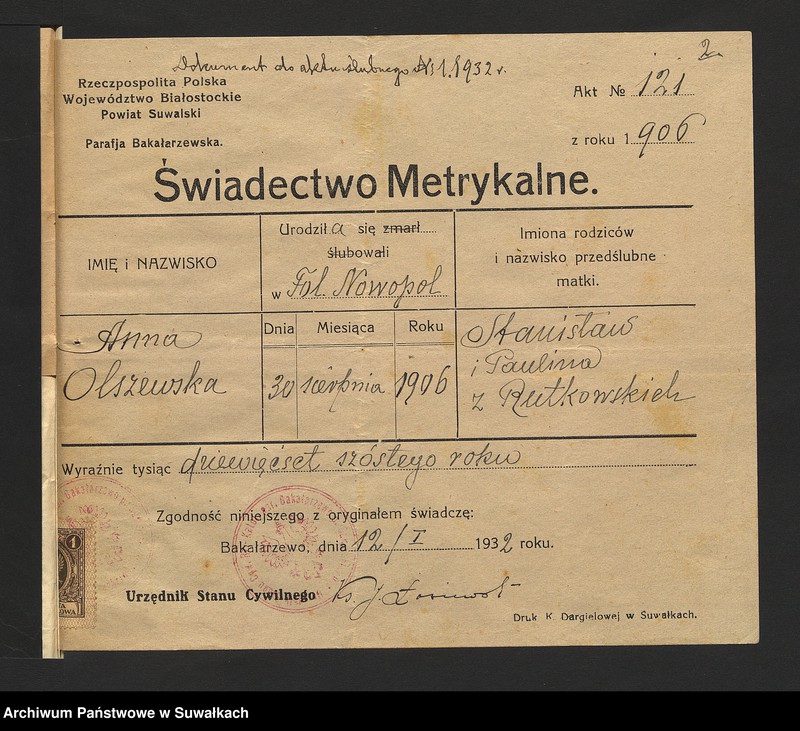 2.
Dokument do aktu ślubnego № 1. 1932 r.
Rzeczpospolita Polska
Województwo Białostockie
Powiat Suwalski
Parafja Bakałarzewska.
Akt № 121
z roku 1906
Świadectwo Metrykalne.
IMIĘ i NAZWISKO
Urodził a się zmarł
ślubowali
w Fol. Nowopol
Imiona rodziców
i nazwisko przedślubne
matki.
Dnia Miesiąca Roku
Anna
Olszewska
30 sierpnia 1906
Stanisław
i Paulina
z Rutkowskich
Wyraźnie tysiąc dziewięćset szóstego roku
Zgodność niniejszego z oryginałem świadczę:
Bakałarzewo, dnia 12/I 1932 roku.
Urzędnik Stanu Cywilnego Ks. J.
Druk K. Dargielowej w Suwałkach.
1
Archiwum Państwowe w Suwałkach